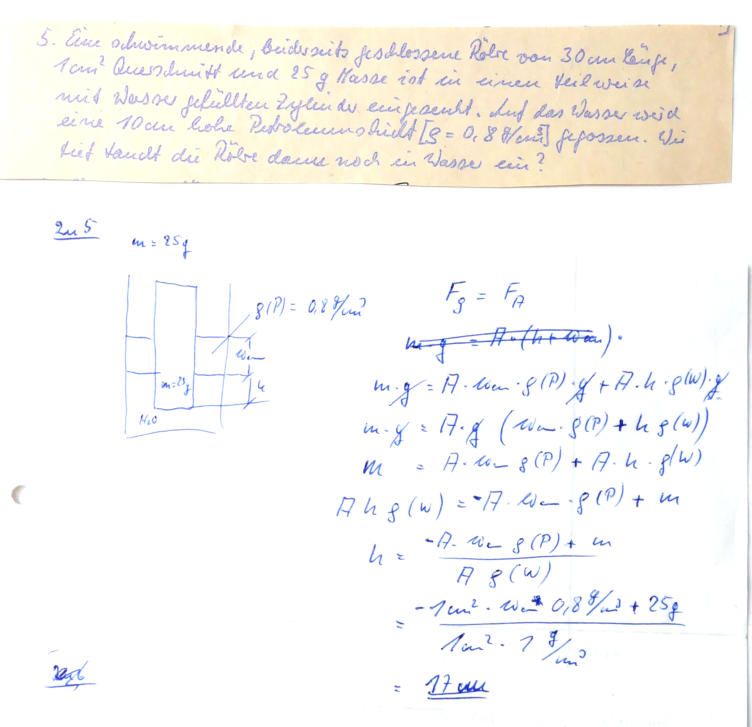 5. Eine schwimmende, beiderseits geschlossene Röhre von 30 cm Länge,
1 cm² Querschnitt und 25 g Masse ist in einen teilweise
mit Wasser gefüllten Zylinder eingesenkt. Auf das Wasser wird
eine 10 cm hohe Petroleumschicht [ρ = 0,8 g/cm³] gegossen. Wie
tief taucht die Röhre dann noch in Wasser ein?
Zu 5
m = 25g
ρ(P) = 0,8 g/cm³
10cm
m=25g
h
H₂O
F_g = F_A
m·g = A·(h+10cm)·
m·g = A·10cm·ρ(P)·g + A·h·ρ(W)·g
m·g = A·g (10cm·ρ(P) + h ρ(W))
m = A·10cm ρ(P) + A·h·ρ(W)
A h ρ(W) = -A·10cm·ρ(P) + m
h = -A·10cm ρ(P) + m
A ρ(W)
= -1cm²·10cm·0,8 g/cm³ + 25g
1cm²·1 g/cm³
= 17cm